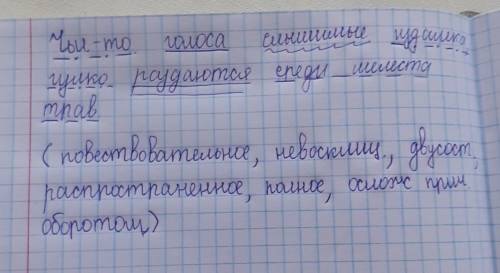 Чьи-то голоса слышимые издалека
гулко раздаются среди шелеста
трав
(повествовательное, невосклиц., двусост,
распространенное, полное, осложн прич
оборотом)